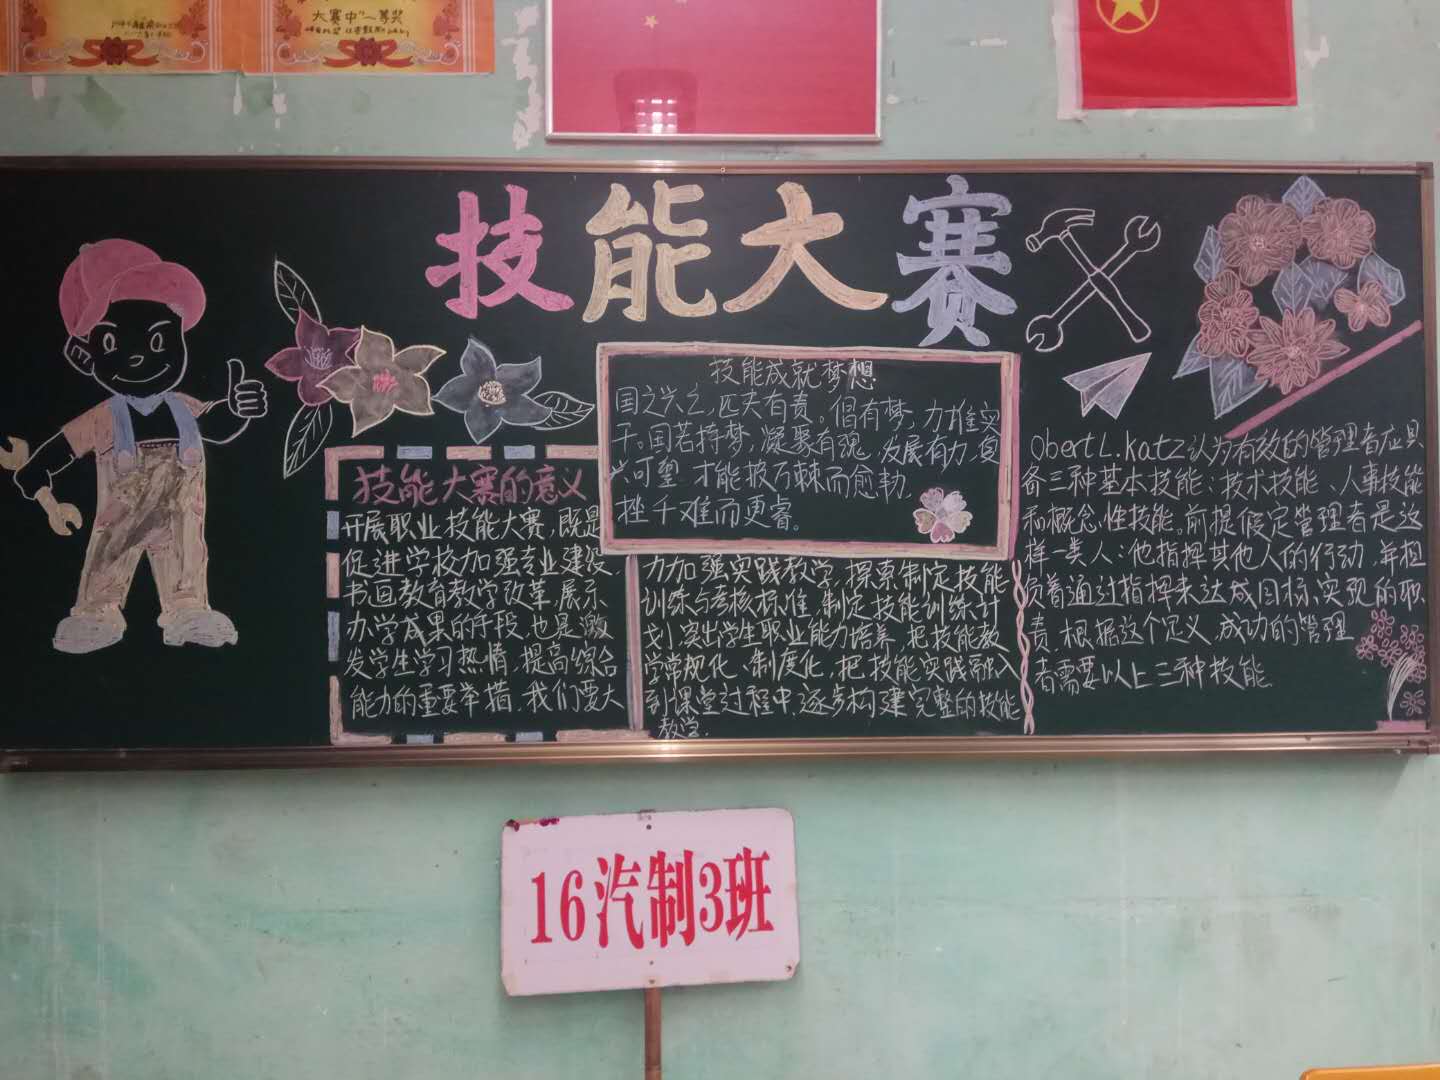 大赛中"一等奖
技能大赛
技能大赛的意义
开展职业技能大赛,既是
促进学校加强专业建设
书画教育教学改革,展示
办学成果的手段,也是激
发学生学习热情,提高综合
能力的重要举措.我们要大
技能成就梦想
国之兴亡,匹夫有责。倡有梦,力推实
干。国若持梦,凝聚有魂,发展有力,复
兴可望.才能披万棘而愈勃,
挫千难而更睿。
力加强实践教学,探索制定技能
训练与考核标准,制定技能训练计
划,突出学生职业能力培养,把技能教
学常规化、制度化,把技能实践融入
到课堂过程中,逐步构建完整的技能
教学.
ObertL.Katz认为有效的管理者应具
备三种基本技能:技术技能、人事技能
和概念性技能。前提假定管理者是这
样一类人:他指挥其他人的行动,并担
负着通过指挥来达成目标、实现的职
责.根据这个定义,成功的管理
者需要以上三种技能.
16汽制3班